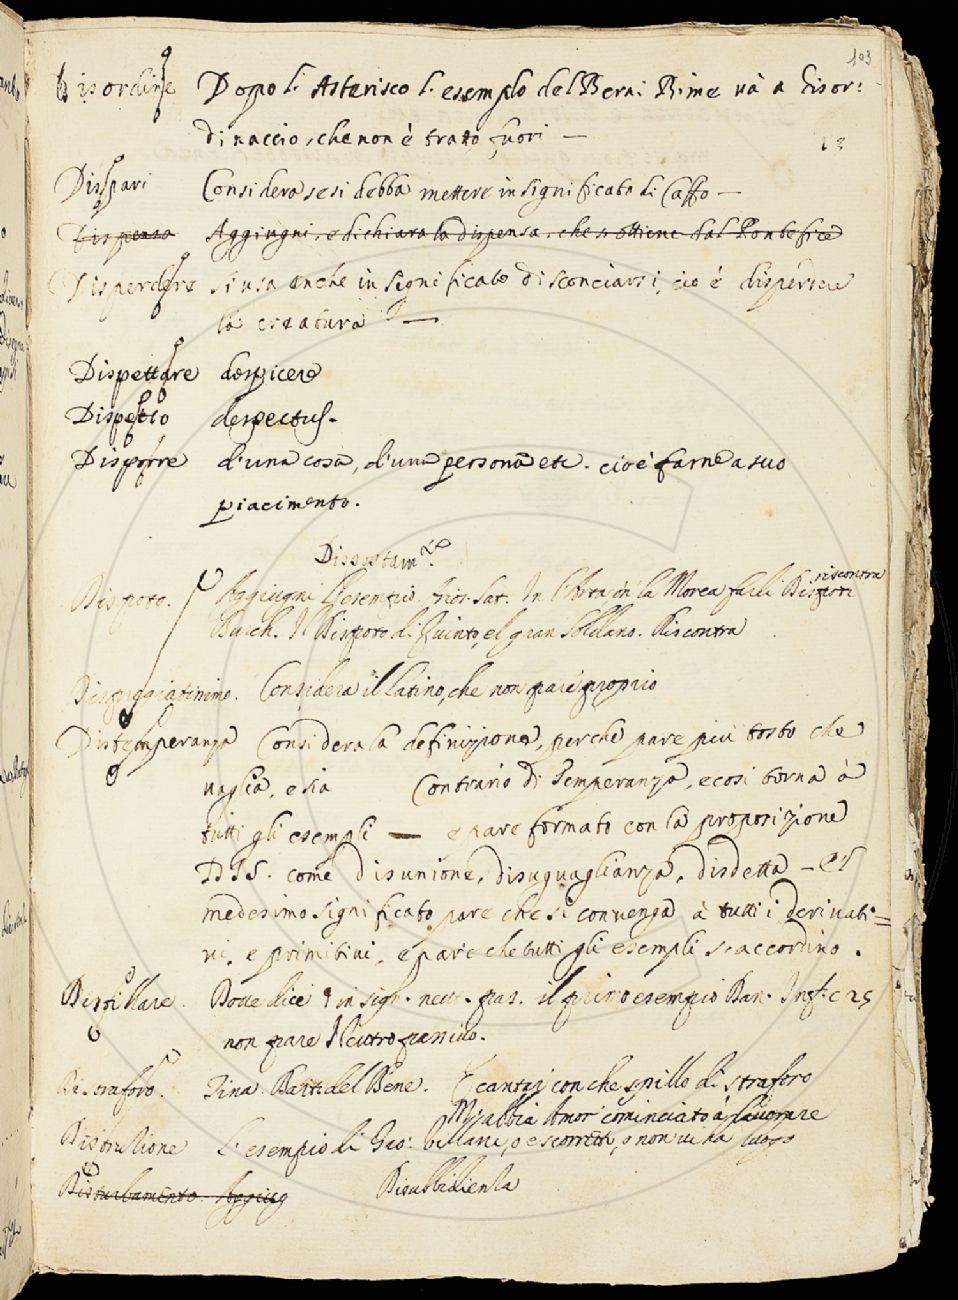 103
Disordine Dopo l'Asterisco l'esempio del Berni Rime và a Disor:
dinaccio, che non è tratto fuori —
13
Dispari Considera se si debba mettere in significato di Caffo —
Dispensa Aggiugni, e dichiara la dispensa, che s'ottiene dal Pontefice
Disperdere si usa anche in significato di sconciarsi, cio è disperdere
la creatura —
Dispettare despicere
Dispetto despectus.
Disporre d'una cosa, d'una persona etc. cioè farne a suo
piacimento.
Dispostam.te
Dispoto. Aggiugni l'esempio. Arios. Sat. In l'Arta è in la Morea farli Dispoti riscontra
Burch. Il Dispoto di Quinto, e'l gran Soldano. Riscontra
Dispiacciatissimo. Considera il Latino, che non pare proprio
Distemperanza Considera la definizione, perchè pare piu tosto che
vaglia, e sia Contrario di Temperanza, e cosi torna à
tutti gli esempli — e pare formato con la proposizione
DIS. come disunione, disuguaglianza, disdetta — e'l
medesimo significato pare che si convenga à tutti i derivati=
vi, e primitivi, e pare che tutti gli esempli s'accordino.
Distillare. Dove dice in sign. neut. pas. il primo esempio Dan. Inf. c 25
non pare Neutro passivo.
Di straforo. Rina. Bart. del Bene. canter con che spillo di straforo
M'abbia Amor cominciato à lavorare
Distruzione L'esempio di Gio: Villani, o è scorretto, o non vi ha luogo
Disturbamento. Aggiug Disubbidienza